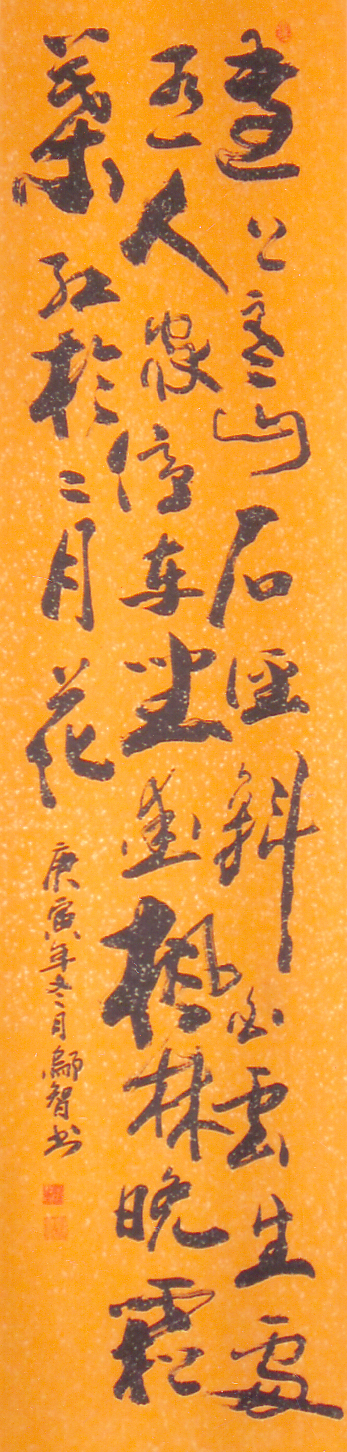 遠上寒山石径斜白雲生處
有人家停车坐愛楓林晚霜
葉红於二月花
庚寅年冬月鄔智书